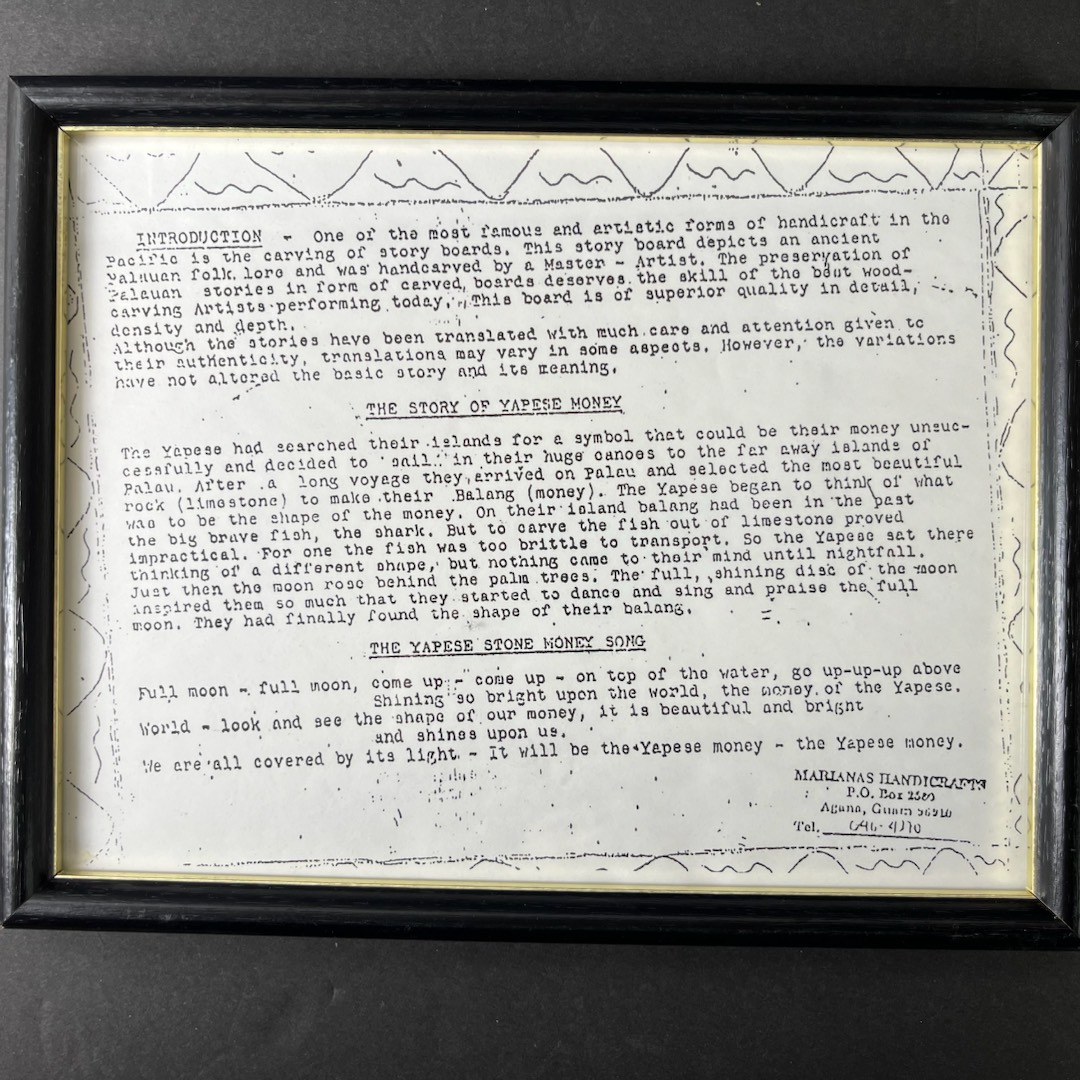 INTRODUCTION - One of the most famous and artistic forms of handicraft in the
Pacific is the carving of story boards. This story board depicts an ancient
Palauan folk lore and was handcarved by a Master - Artist. The preservation of
Palauan stories in form of carved boards deserves the skill of the best wood-
carving Artists performing today. This board is of superior quality in detail,
density and depth.
Although the stories have been translated with much care and attention given to
their authenticity, translations may vary in some aspects. However, the variations
have not altered the basic story and its meaning.
THE STORY OF YAPESE MONEY
The Yapese had searched their islands for a symbol that could be their money unsuc-
cessfully and decided to sail in their huge canoes to the far away islands of
Palau. After a long voyage they arrived on Palau and selected the most beautiful
rock (limestone) to make their Balang (money). The Yapese began to think of what
was to be the shape of the money. On their island balang had been in the past
the big brave fish, the shark. But to carve the fish out of limestone proved
impractical. For one the fish was too brittle to transport. So the Yapese sat there
thinking of a different shape, but nothing came to their mind until nightfall.
Just then the moon rose behind the palm trees. The full, shining disc of the moon
inspired them so much that they started to dance and sing and praise the full
moon. They had finally found the shape of their balang.
THE YAPESE STONE MONEY SONG
Full moon - full moon, come up - come up - on top of the water, go up-up-up above
Shining so bright upon the world, the money of the Yapese.
World - look and see the shape of our money, it is beautiful and bright
and shines upon us.
We are all covered by its light - It will be the Yapese money - the Yapese money.
MARIANAS HANDICRAFTS
P.O. Box
Agana, Guam 96910
Tel.